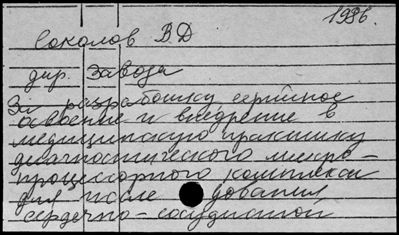 1986.
Соколов В.Д
дир. завода
За разработку, серийное
освоение и внедрение в
медицинскую практику
диагностического микро-
процессорного комплекса
для иссле дования
сердечно-сосудистой